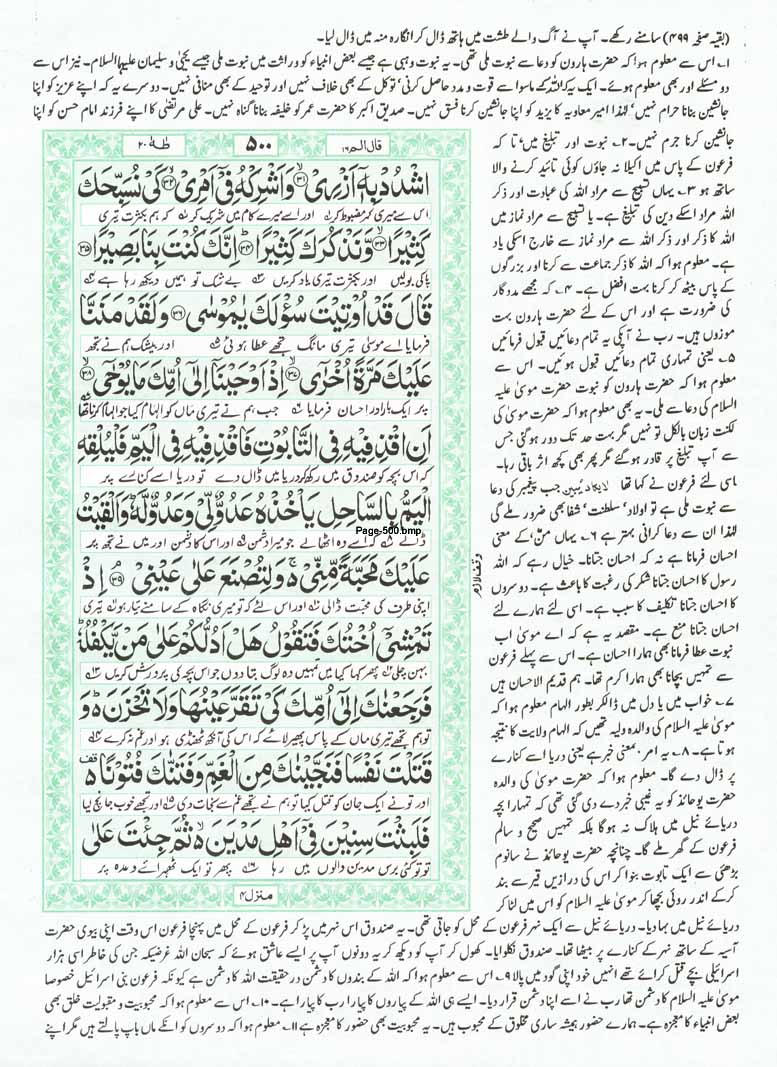 (بقیہ صفحہ ۴۹۹) سامنے رکھے۔ آپ نے آگ والے طشت میں ہاتھ ڈال کر انگارہ منہ میں ڈال لیا۔
۱۔ اس سے معلوم ہوا کہ حضرت ہارون کو دعا سے نبوت ملی تھی۔ یہ نبوت وہبی ہی ہے جیسے بعض انبیاء کو وراثت میں نبوت ملی جیسے یحییٰ و سلیمان علیہما السلام۔ نیز اس سے
دو مسئلے اور بھی معلوم ہوئے۔ ایک یہ کہ اللہ کے ماسوا سے قوت و مدد حاصل کرنی، توکل کے بھی خلاف نہیں اور توحید کے بھی منافی نہیں۔ دوسرے یہ کہ اپنے عزیز کو اپنا
جانشین بنانا حرام نہیں، لہٰذا امیر معاویہ کا یزید کو اپنا جانشین کرنا فسق نہیں۔ صدیق اکبر کا حضرت عمر کو خلیفہ بنانا گناہ نہیں۔ علی مرتضیٰ کا اپنے فرزند امام حسن کو اپنا
جانشین کرنا جرم نہیں۔ ۲۔ نبوت اور تبلیغ میں، تا کہ
فرعون کے پاس میں اکیلا نہ جاؤں کوئی تائید کرنے والا
ساتھ ہو ۳۔ یہاں تسبیح سے مراد اللہ کی عبادت اور ذکر
اللہ مراد اسکے دین کی تبلیغ ہے۔ یا تسبیح سے مراد نماز میں
اللہ کا ذکر اور ذکر اللہ سے مراد نماز سے خارج اسکی یاد
ہے۔ معلوم ہوا کہ اللہ کا ذکر جماعت سے کرنا اور بزرگوں
کے پاس بیٹھ کر کرنا بہت افضل ہے۔ ۴۔ کہ مجھے مددگار
کی ضرورت ہے اور اس کے لئے حضرت ہارون بہت
موزوں ہیں۔ رب نے آپکی یہ تمام دعائیں قبول فرمائیں
۵۔ یعنی تمہاری تمام دعائیں قبول ہوئیں۔ اس سے
معلوم ہوا کہ حضرت ہارون کو نبوت حضرت موسیٰ علیہ
السلام کی دعا سے ملی۔ یہ بھی معلوم ہوا کہ حضرت موسیٰ کی
لکنت زبان بالکل تو نہیں مگر بہت حد تک دور ہوگئی جس
سے آپ تبلیغ پر قادر ہوگئے مگر پھر بھی کچھ اثر باقی رہا۔
اسی لئے فرعون نے کہا تھا لَا یَکَادُ یُبِیْنُ جب پیغمبر کی دعا
سے نبوت ملی ہے تو اولاد، سلطنت، شفا بھی ضرور ملے گی
لہٰذا ان سے دعا کرانی بہتر ہے ۶۔ یہاں منّ، کے معنی
احسان فرمانا ہے نہ کہ احسان جتانا۔ خیال رہے کہ اللہ
رسول کا احسان جتانا شکر کی رغبت کا باعث ہے۔ دوسروں
کا احسان جتانا تکلیف کا سبب ہے۔ اسی لئے ہمارے لئے
احسان جتانا منع ہے۔ مقصد یہ ہے کہ اے موسیٰ اب
نبوت عطا فرمانا بھی ہمارا احسان ہے۔ اس سے پہلے فرعون
سے تمہیں بچانا بھی ہمارا کرم تھا۔ ہم قدیم الاحسان ہیں
۷۔ خواب میں یا دل میں ڈال کر بطور الہام معلوم ہوا کہ
موسیٰ علیہ السلام کی والدہ ولیہ تھیں کہ الہام ولایت کا نتیجہ
ہوتا ہے۔ ۸۔ یہ امر بمعنی خبر ہے یعنی دریا اسے کنارے
پر ڈال دے گا۔ معلوم ہوا کہ حضرت موسیٰ کی والدہ
حضرت یوحانذ کو یہ غیبی خبر دے دی گئی تھی کہ تمہارا بچہ
دریائے نیل میں ہلاک نہ ہوگا بلکہ تمہیں صحیح و سالم
فرعون کے گھر ملے گا۔ چنانچہ حضرت یوحانذ نے سانوم
بڑھئی سے ایک تابوت بنوا کر اس کی درازیں قیر سے بند
کرکے اندر روئی بچھا کر موسیٰ علیہ السلام کو اس میں لٹا کر
قال الم ۱۶
۵۰۰
طٰہٰ ۲۰
اشْدُدْ بِهٖۤ اَزْرِیْ ۳۱ وَ اَشْرِكْهُ فِیْۤ اَمْرِیْ ۳۲ كَیْ نُسَبِّحَكَ
اس سے میری کمر مضبوط کر اور اسے میرے کام میں شریک کر کہ ہم بکثرت تیری
كَثِیْرًا ۳۳ وَّ نَذْكُرَكَ كَثِیْرًا ۳۴ اِنَّكَ كُنْتَ بِنَا بَصِیْرًا ۳۵
پاکی بولیں اور بکثرت تیری یاد کریں بے شک تو ہمیں دیکھ رہا ہے
قَالَ قَدْ اُوْتِیْتَ سُؤْلَكَ یٰمُوْسٰى ۳۶ وَ لَقَدْ مَنَنَّا
فرمایا اے موسیٰ تیری مانگ تجھے عطا ہوئی اور بیشک ہم نے تجھ
عَلَیْكَ مَرَّةً اُخْرٰۤى ۳۷ اِذْ اَوْحَیْنَاۤ اِلٰۤى اُمِّكَ مَا یُوْحٰۤى ۳۸
پر ایک بار اور احسان فرمایا جب ہم نے تیری ماں کو الہام کیا جو الہام کرنا تھا
اَنِ اقْذِفِیْهِ فِی التَّابُوْتِ فَاقْذِفِیْهِ فِی الْیَمِّ فَلْیُلْقِهِ
کہ اس بچہ کو صندوق میں رکھ کر دریا میں ڈال دے تو دریا اسے کنارے پر
الْیَمُّ بِالسَّاحِلِ یَاْخُذْهُ عَدُوٌّ لِّیْ وَ عَدُوٌّ لَّهٗ وَ اَلْقَیْتُ
ڈالے کہ اسے وہ اٹھالے جو میرا دشمن اور اس کا دشمن اور میں نے تجھ پر
Page-500.bmp
عَلَیْكَ مَحَبَّةً مِّنِّیْ وَ لِتُصْنَعَ عَلٰى عَیْنِیْ ۳۹ اِذْ
اپنی طرف کی محبت ڈالی اور اس لئے کہ تو میری نگاہ کے سامنے تیار ہو تیری
وقف لازم
تَمْشِیْۤ اُخْتُكَ فَتَقُوْلُ هَلْ اَدُلُّكُمْ عَلٰى مَنْ یَّكْفُلُهٗ
بہن چلی پھر کہا کیا میں تمہیں وہ لوگ بتا دوں جو اس بچہ کی پرورش کریں
فَرَجَعْنٰكَ اِلٰۤى اُمِّكَ كَیْ تَقَرَّ عَیْنُهَا وَ لَا تَحْزَنَ وَ
تو ہم تجھے تیری ماں کے پاس پھیر لائے کہ اس کی آنکھ ٹھنڈی ہو اور غم نہ کرے
قَتَلْتَ نَفْسًا فَنَجَّیْنٰكَ مِنَ الْغَمِّ وَ فَتَنّٰكَ فُتُوْنًا
اور تو نے ایک جان کو قتل کیا تو ہم نے تجھے غم سے نجات دی اور تجھے خوب جانچ لیا
فَلَبِثْتَ سِنِیْنَ فِیْۤ اَهْلِ مَدْیَنَ ثُمَّ جِئْتَ عَلٰى
تو تو کئی برس مدین والوں میں رہا پھر تو ایک ٹھہرائے وعدہ پر
منزل ۴
دریائے نیل میں بہا دیا۔ دریائے نیل سے ایک نہر فرعون کے محل کو جاتی تھی۔ یہ صندوق اس نہر میں پڑ کر فرعون کے محل میں پہنچا فرعون اس وقت اپنی بیوی حضرت
آسیہ کے ساتھ نہر کے کنارے پر بیٹھا تھا۔ صندوق نکلوایا۔ کھول کر آپ کو دیکھ کر یہ دونوں آپ پر ایسے عاشق ہوئے کہ سبحان اللہ غرضیکہ جن کی خاطر اسی ہزار
اسرائیلی بچے قتل کرائے تھے انہیں خود اپنی گود میں پالا ۹۔ اس سے معلوم ہوا کہ اللہ کے بندوں کا دشمن درحقیقت اللہ کا دشمن ہے کیونکہ فرعون بنی اسرائیل خصوصا
موسیٰ علیہ السلام کا دشمن تھا رب نے اسے اپنا دشمن قرار دیا۔ ایسے ہی اللہ کے پیاروں کا پیارا رب کا پیارا ہے۔ ۱۰۔ اس سے معلوم ہوا کہ محبوبیت و مقبولیت خلق بھی
بعض انبیاء کا معجزہ ہے۔ ہمارے حضور ہمیشہ ساری مخلوق کے محبوب ہیں۔ یہ محبوبیت بھی حضور کا معجزہ ہے ۱۱۔ معلوم ہوا کہ دوسروں کو انکے ماں باپ پالتے ہیں مگر اپنے